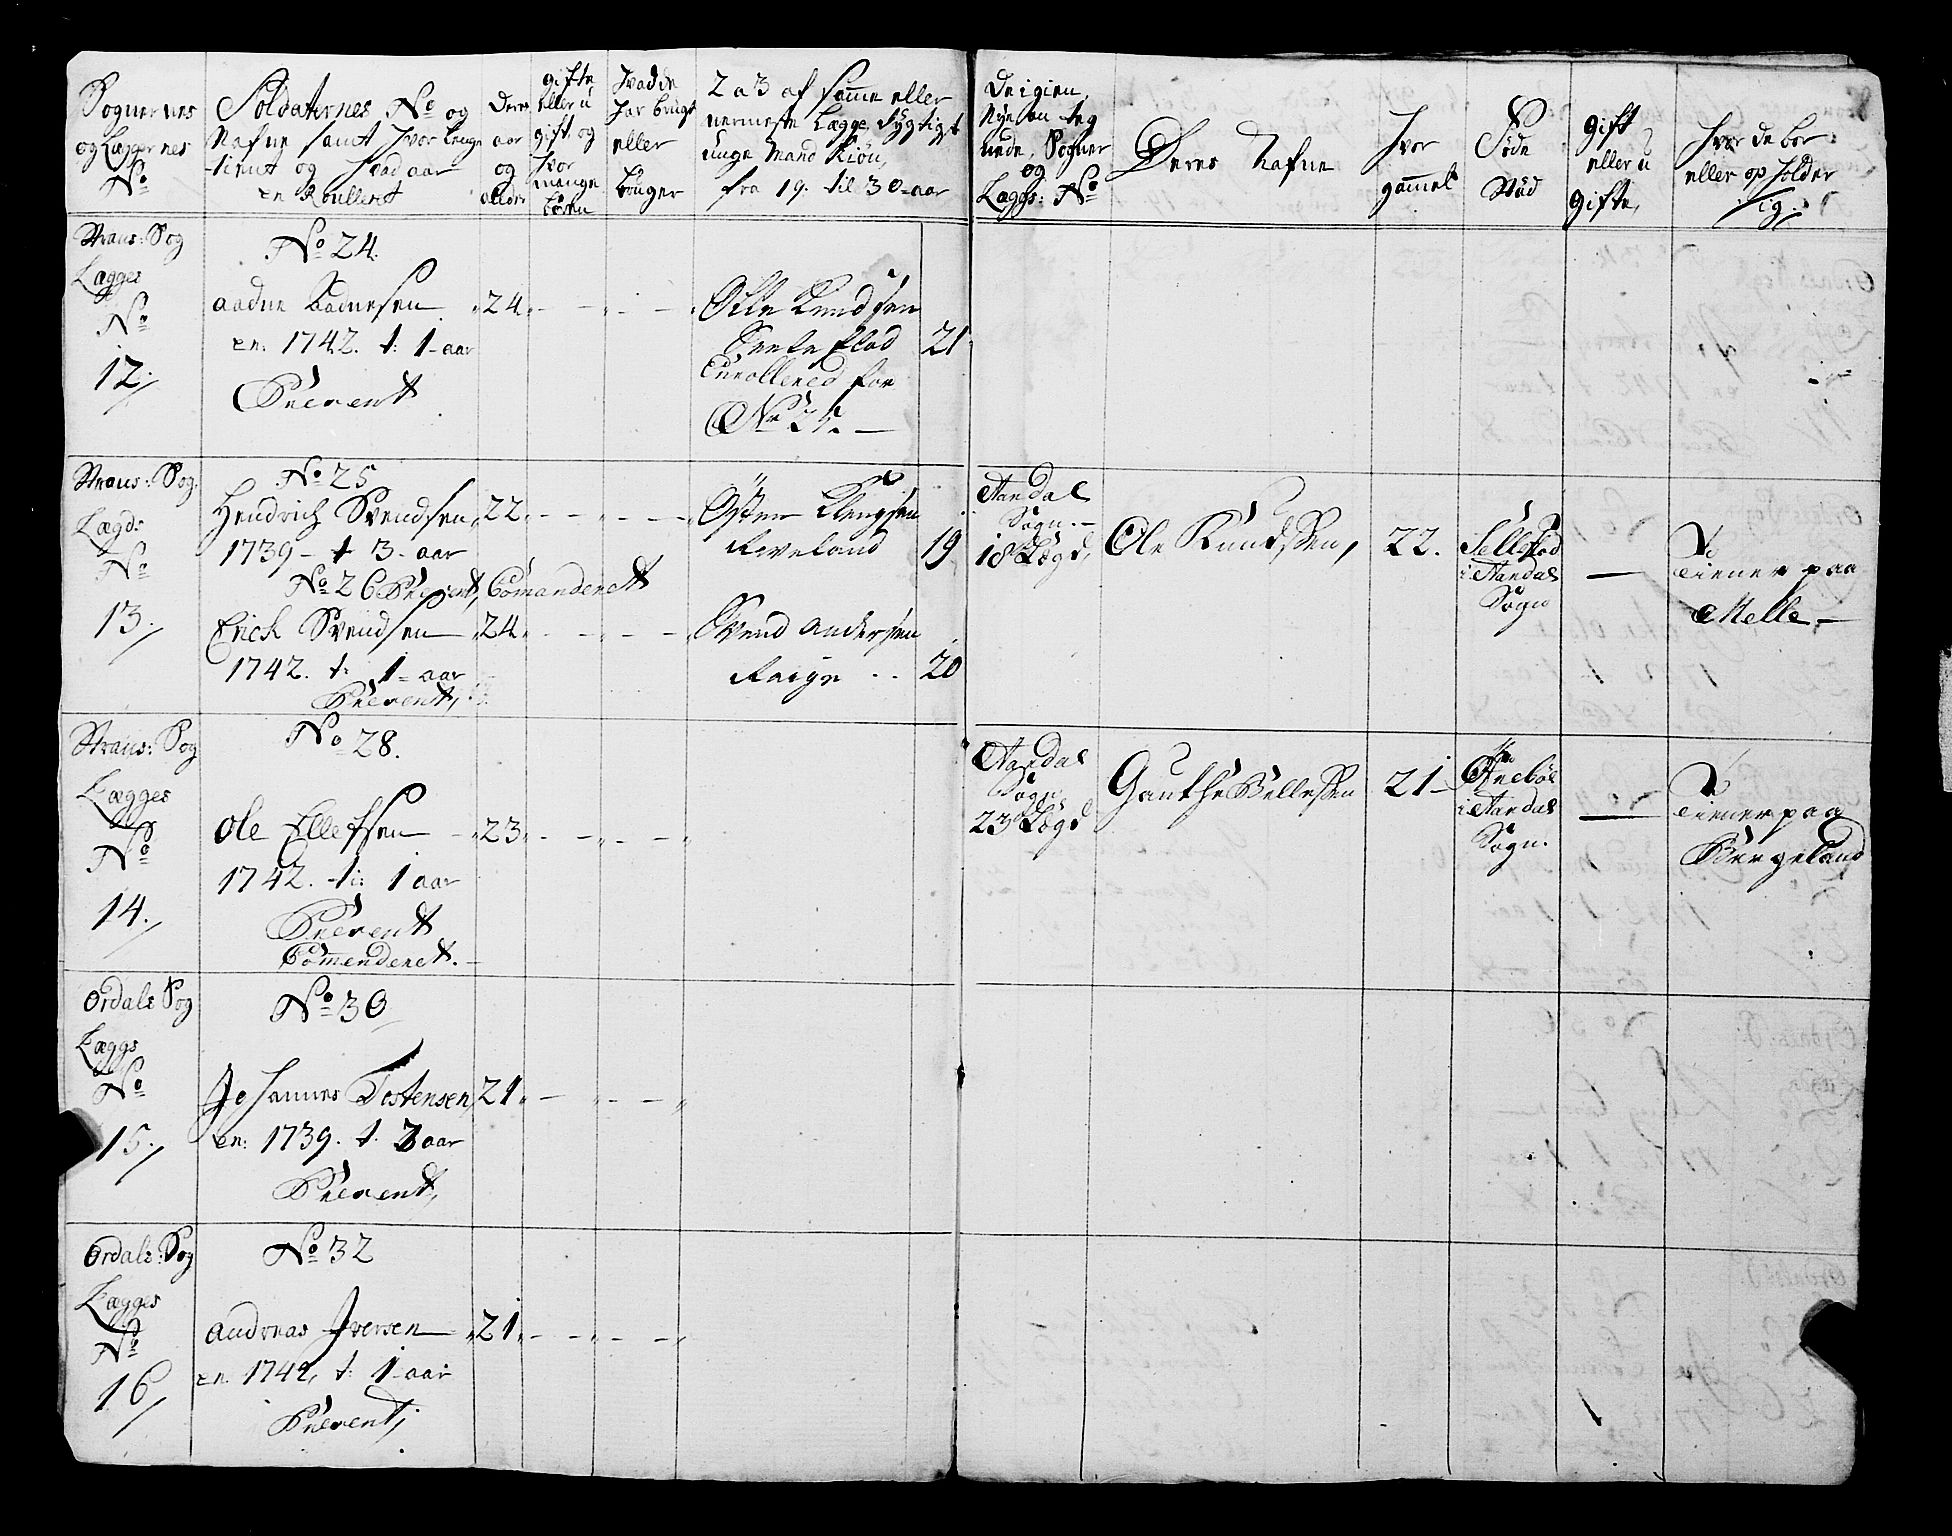 Sognernes
og Læggernes
No
Soldaternes No og
Nafne samt hvor lenge
tient og hvad aar
en Roulleret
Deres
aar
og
alder
gifte
eller u
gift og
hvor
mange
børn
hvad de
har brugt
eller
bruger
2 a 3 af samme eller
nermeste Lægge, dygtigst
unge Mand Kiøn,
fra 19. til 30-aar
De igien,
Nye an teg
nede, Sogner
og
Lægs: No
Deres Nafne
hvor
gammel
Føde
Stæd
gift
eller u
gifte,
hvor de bor
eller op holder
sig
Strans: Sog
Lægges
No
12./
No 24.
Aadne Aadnesen
en: 1742. t: 1-aar
Præsent
24
Olle Knudsen
Enrollered for
No 25.
21
Strans: Sog.
Lægds
No
13./
No 25
Hendrich Svendsen
1739 - t 3-aar
No 26 Præsent, Comanderet
Erick Svendsen
1742. t: 1-aar
Præsent,
22
24
Østen
Røveland
19
Svend Andersen
Raige
20
Aardal
Sogn.
18 Lægd,
Ole Knudssen,
22.
Selleflod
i Aardals
Sogn
Tiener paa
Melle
Strans: Sog
Lægges
No
14./
No 28.
Ole Ellefsen
1742. t: 1 aar
Præsent
Comenderet.
23
Aardal
Sogn
23 Lægd
Gauthe Pellessen
21
i Aardal
Sogn.
Tiener paa
Bergeland
Ordals Sog
Læggs
No
15./
No 30
Johannes Tostensen
en: 1739. t. 3 aar
Præsent,
21
Ordals: Sog
Lægges
No
16/
No 32
Andreas Iversen
en. 1742, t: 1-aar
Præsent,
21